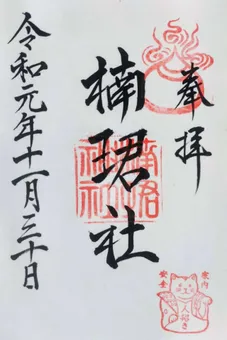 奉拝
楠珺社
楠珺社
令和元年十一月三十日